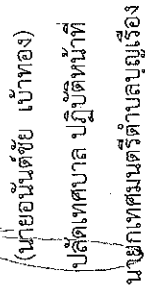 (นายอนันต์ชัย เบ้าทอง)
ปลัดเทศบาล ปฏิบัติหน้าที่
นายกเทศมนตรีตำบลบุญเรือง